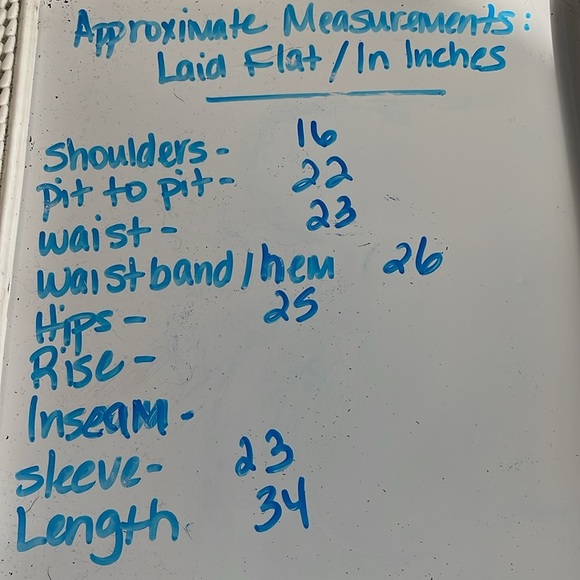 Approximate Measurements:
Laid Flat / In Inches
Shoulders - 16
pit to pit - 22
waist - 23
waistband / hem 26
Hips - 25
Rise -
Inseam -
sleeve - 23
Length 34